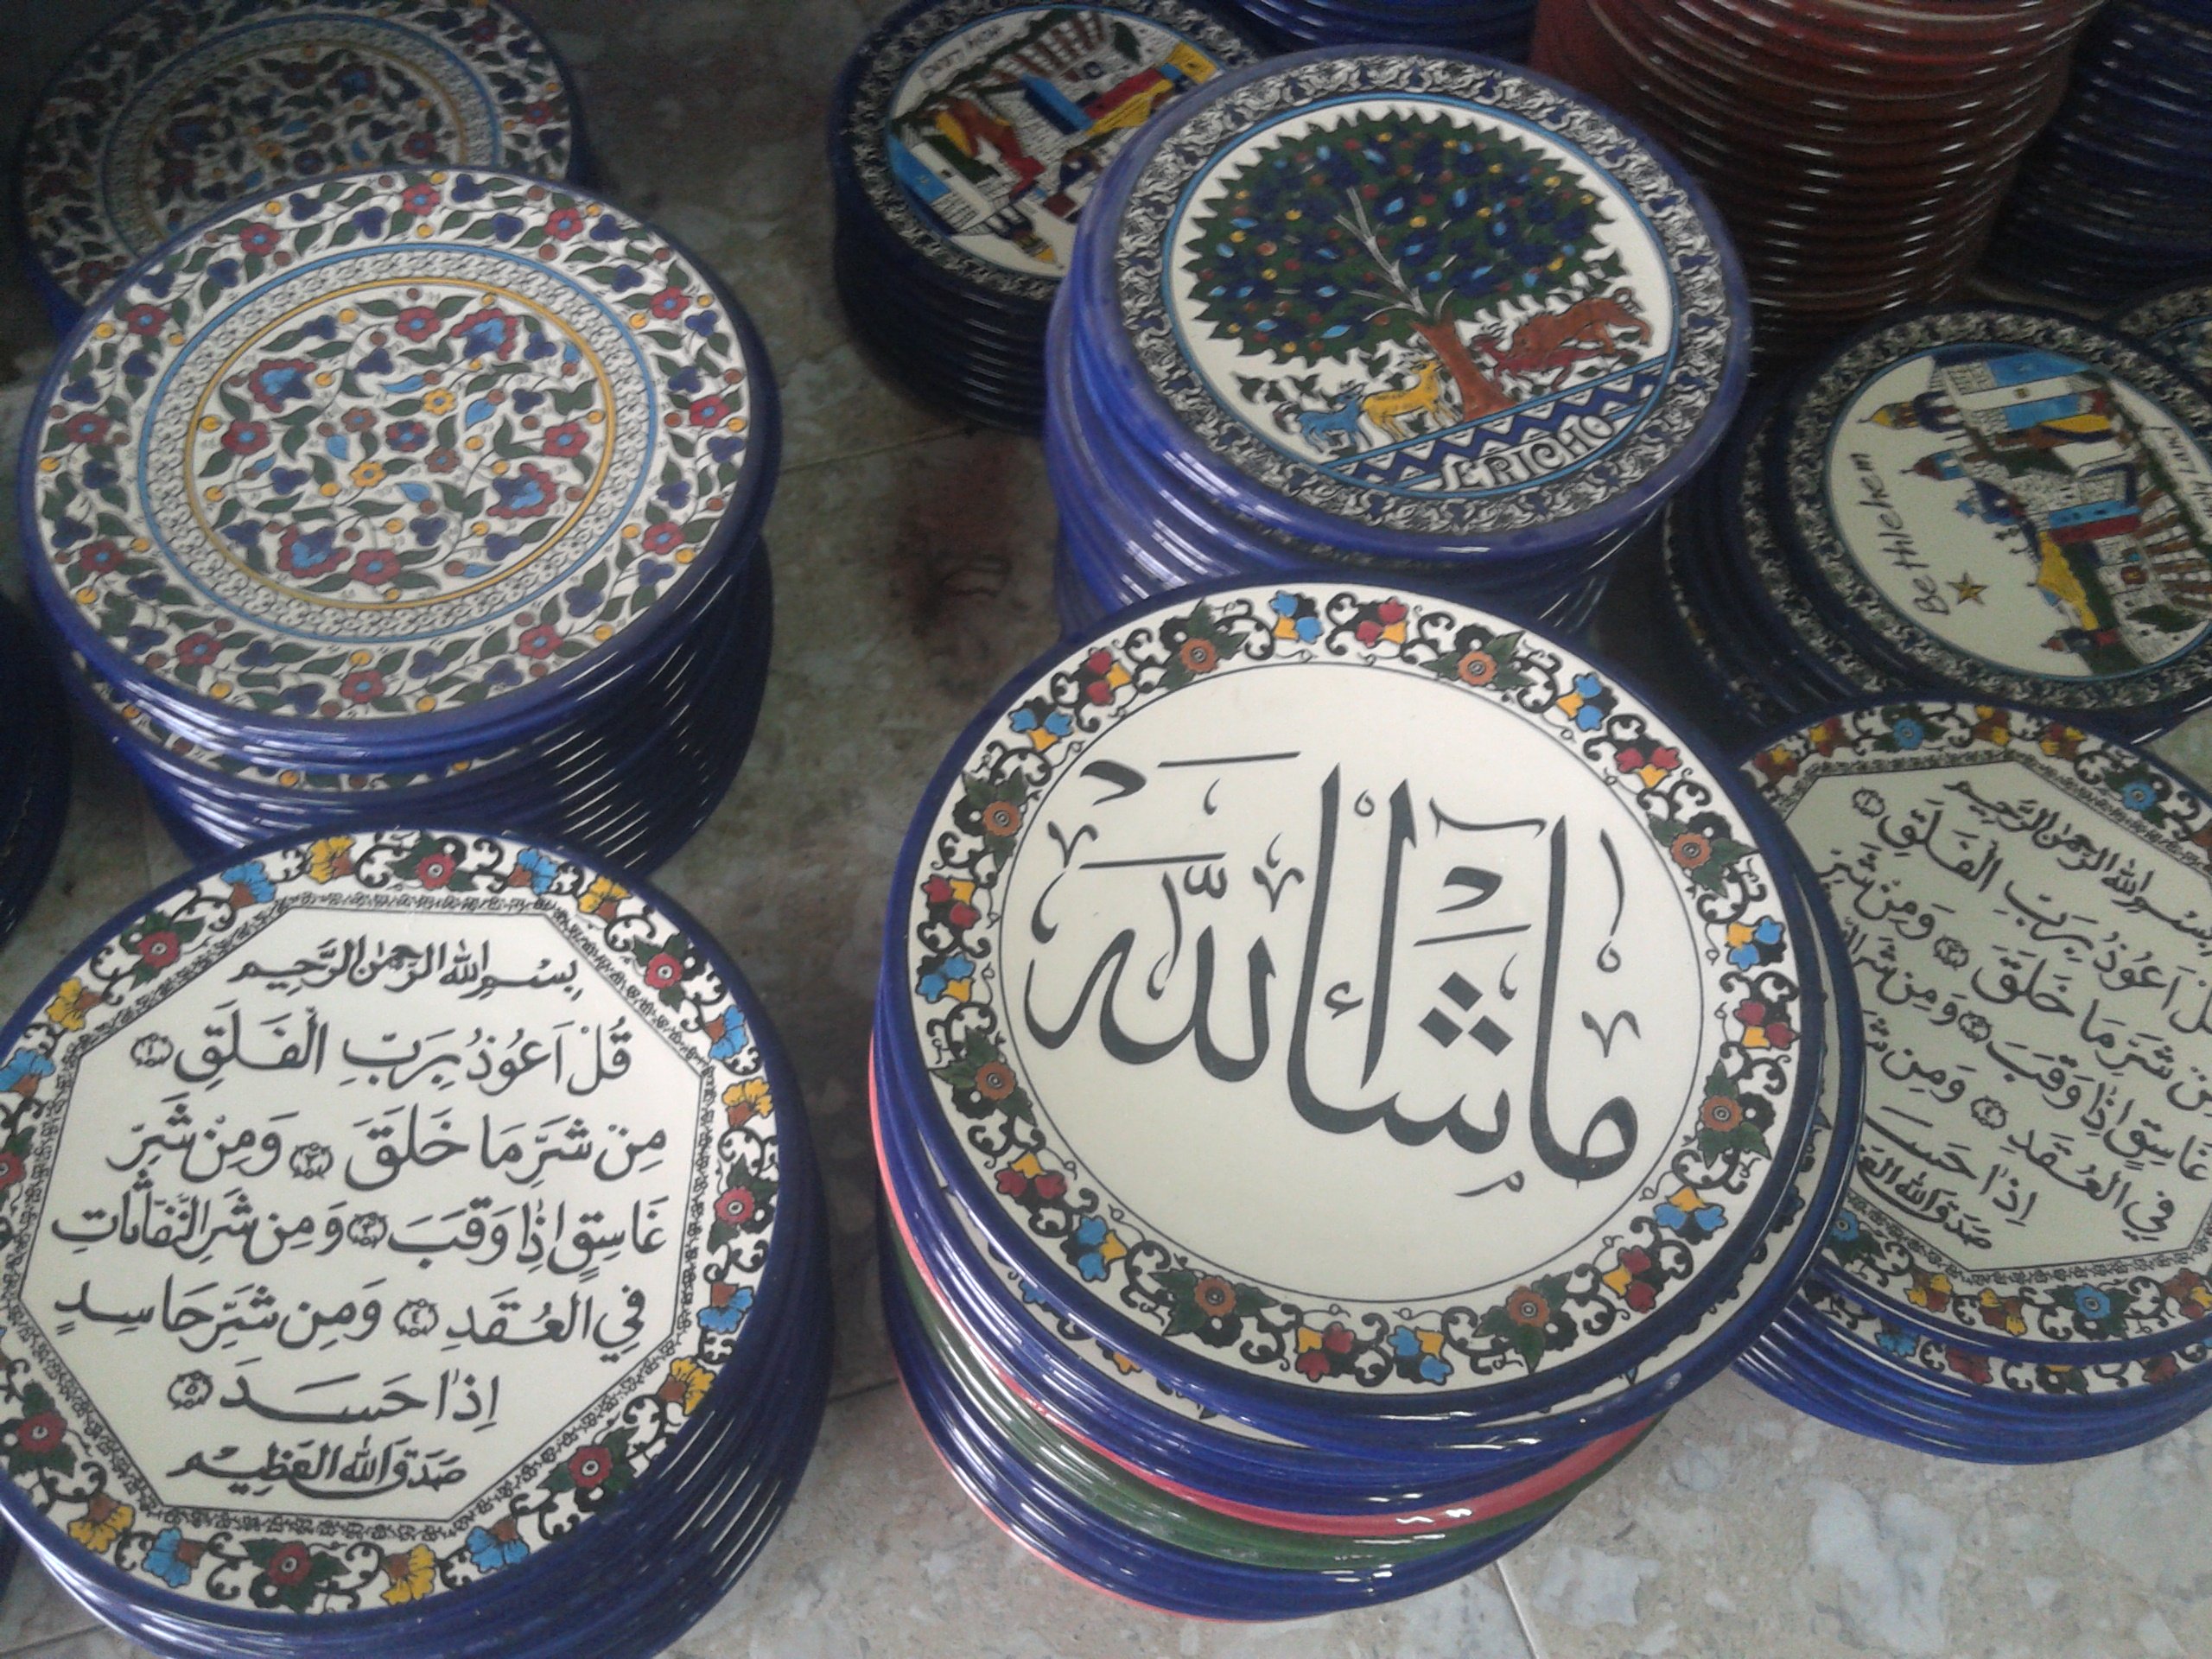 JERICHO
Bethlehem
ما شاء الله
بسم الله الرحمن الرحيم
قُلْ اَعُوذُ بِرَبِّ الْفَلَقِ ١
مِنْ شَرِّ مَا خَلَقَ ٢ وَمِنْ شَرِّ
غَاسِقٍ اِذَا وَقَبَ ٣ وَمِن شَرِّ النَّفَّاثَاتِ
فِي الْعُقَدِ ٤ وَمِن شَرِّ حَاسِدٍ
اِذَا حَسَدَ ٥
صَدَقَ اللّٰه العَظِيم
بسم الله الرحمن الرحيم
قل اَعُوذُ بِرَبِّ الْفَلَقِ ١
مِنْ شَرِّ مَا خَلَقَ ٢ وَمِنْ شَرِّ
غَاسِقٍ اِذَا وَقَبَ ٣ وَمِن شَرِّ
فِي الْعُقَدِ ٤ وَمِن شَرِّ
اِذَا حَسَدَ
صَدَقَ اللّٰه